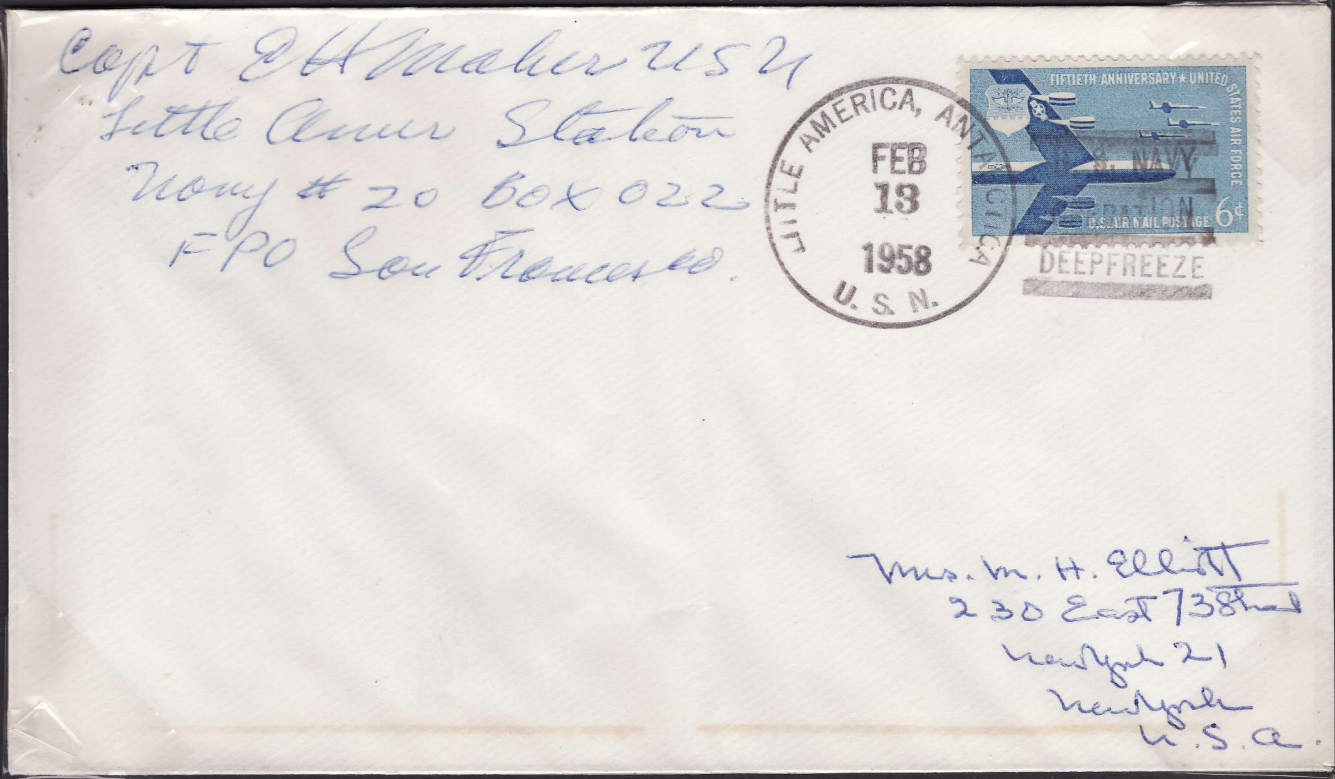 Capt E H Maher USN
Little Amer Station
Navy # 20 Box 022
FPO San Francisco.
LITTLE AMERICA, ANTARCTICA
FEB
13
1958
U. S. N.
FIFTIETH ANNIVERSARY ★ UNITED STATES AIR FORCE
U.S. AIR MAIL POSTAGE 6¢
U. S. NAVY
OPERATION
DEEPFREEZE
Mrs. M. H. Elliott
230 East 73 Street
New York 21
New York
U. S. A.